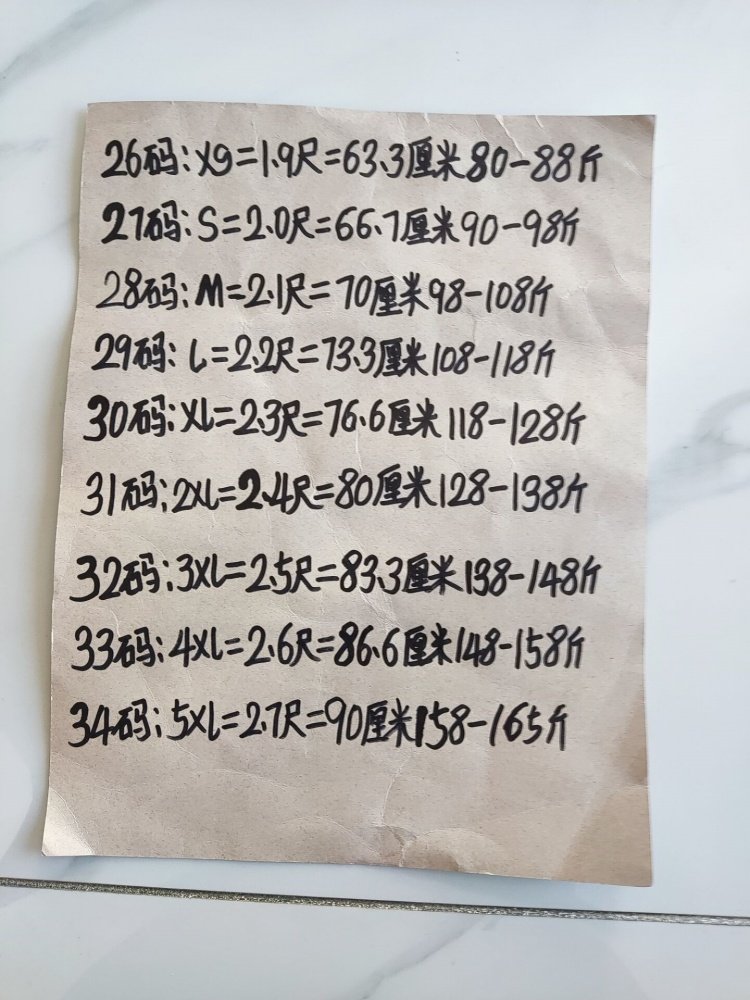 26码:XS=1.9尺=63.3厘米80-88斤
27码:S=2.0尺=66.7厘米90-98斤
28码:M=2.1尺=70厘米98-108斤
29码:L=2.2尺=73.3厘米108-118斤
30码:XL=2.3尺=76.6厘米118-128斤
31码:2XL=2.4尺=80厘米128-138斤
32码:3XL=2.5尺=83.3厘米138-148斤
33码:4XL=2.6尺=86.6厘米148-158斤
34码:5XL=2.7尺=90厘米158-165斤